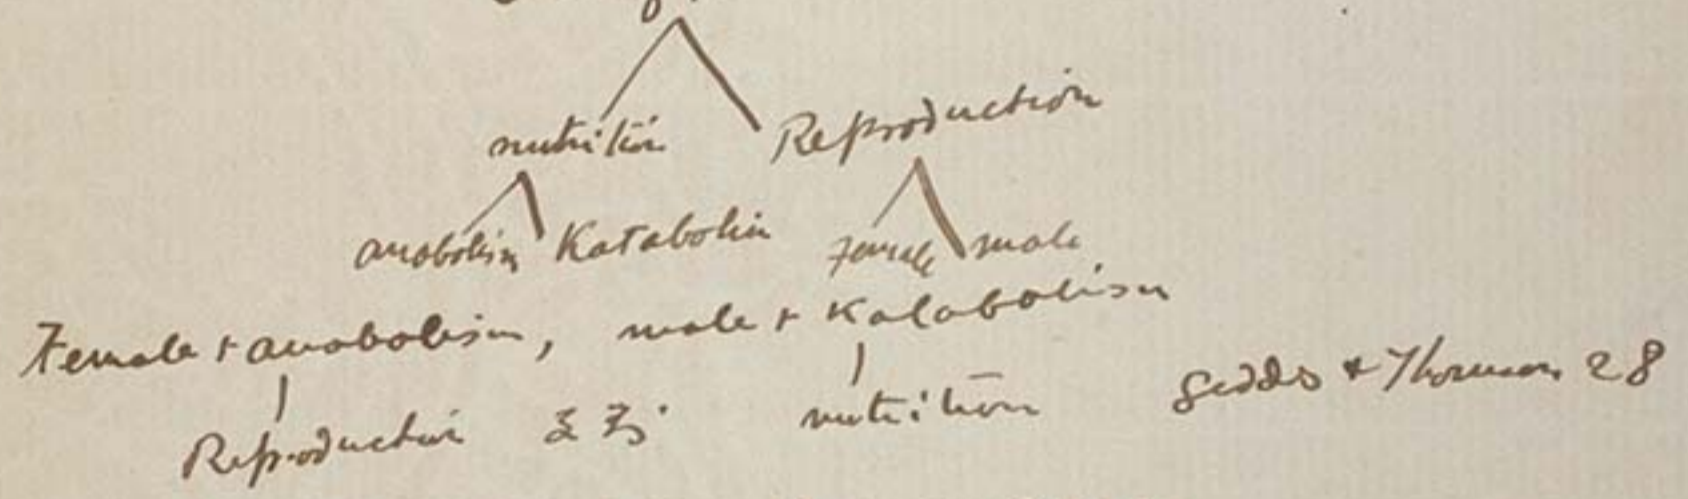 nutrition Reproduction
anabolism Katabolism female male
Female + anabolism, male + Katabolism
Reproduction nutrition Geddes + Thomson 28